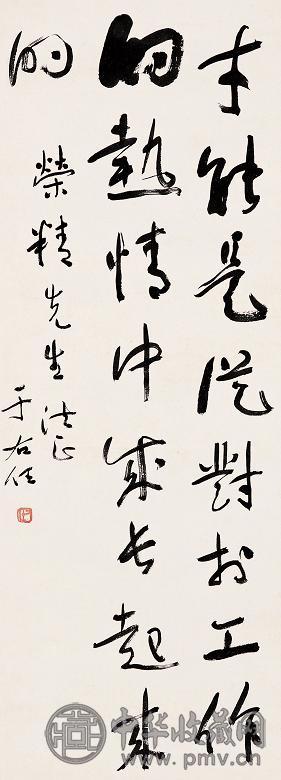 才能是從對於工作
的熱情中成長起來
的
榮精先生法正
于右任
中华收藏网
www.pmv.cn